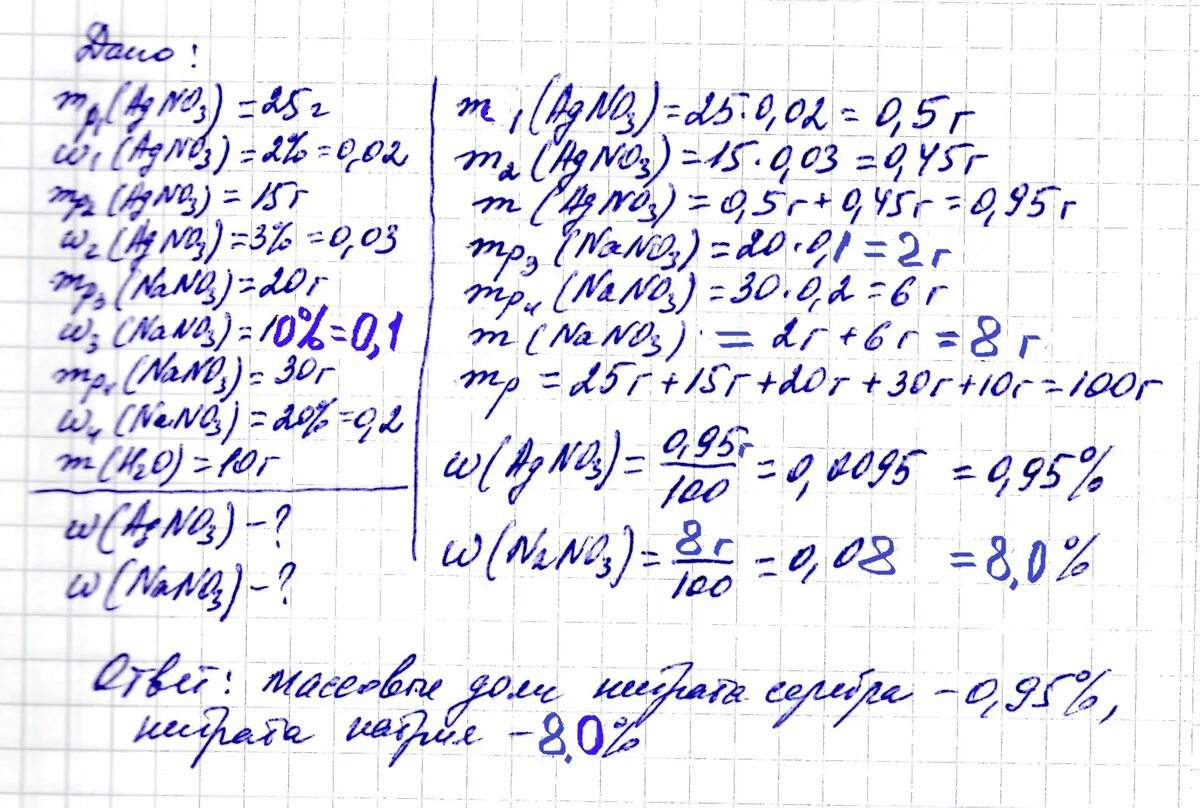 Дано:
mр₁(AgNO₃) = 25г
ω₁(AgNO₃) = 2% = 0,02
mр₂(AgNO₃) = 15г
ω₂(AgNO₃) = 3% = 0,03
mр₃(NaNO₃) = 20г
ω₃(NaNO₃) = 10% = 0,1
mр₄(NaNO₃) = 30г
ω₄(NaNO₃) = 20% = 0,2
m(H₂O) = 10г
ω(AgNO₃) - ?
ω(NaNO₃) - ?
m₁(AgNO₃) = 25·0,02 = 0,5г
m₂(AgNO₃) = 15·0,03 = 0,45г
m(AgNO₃) = 0,5г + 0,45г = 0,95г
mр₃(NaNO₃) = 20·0,1 = 2г
mр₄(NaNO₃) = 30·0,2 = 6г
m(NaNO₃) = 2г + 6г = 8г
mр = 25г + 15г + 20г + 30г + 10г = 100г
ω(AgNO₃) = 0,95г/100 = 0,0095 = 0,95%
ω(NaNO₃) = 8г/100 = 0,08 = 8.0%
Ответ: массовые доли нитрата серебра - 0,95%,
нитрата натрия - 8.0%